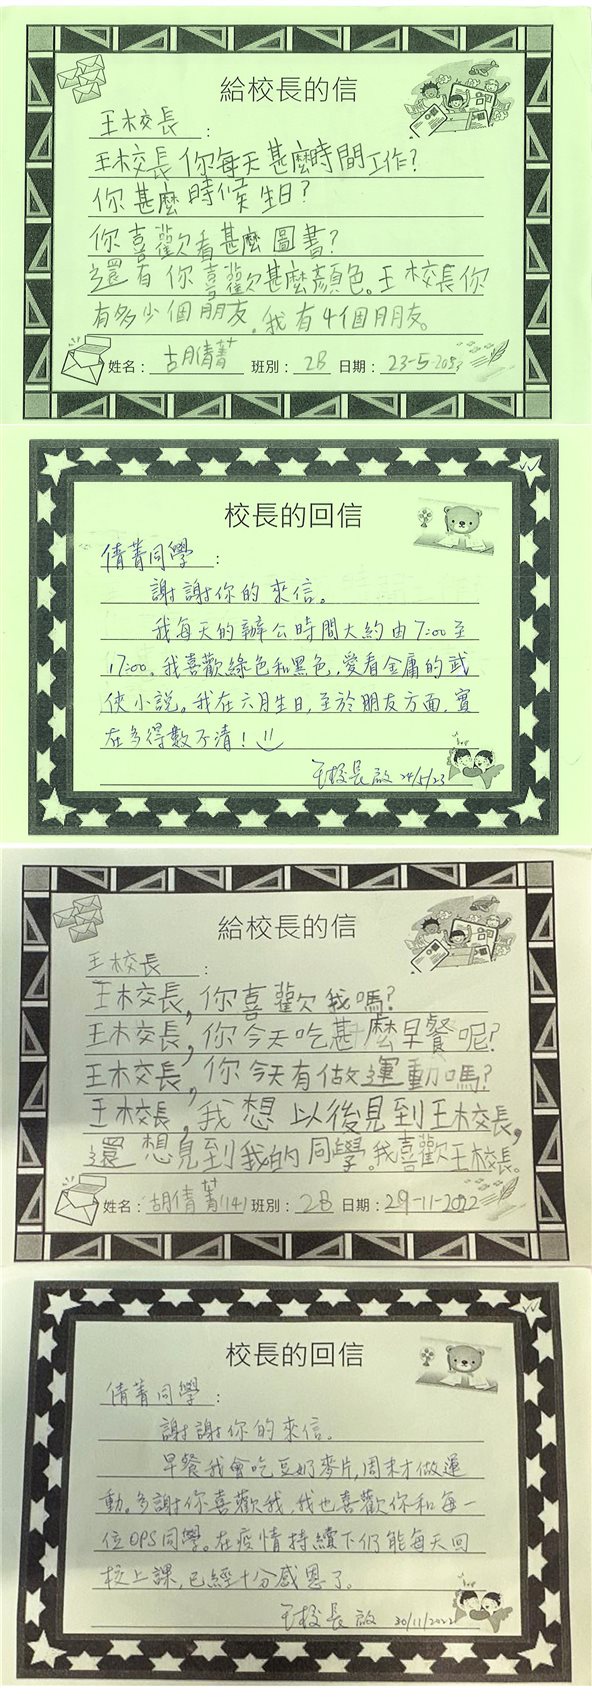 給校長的信
王校長：
王校長你每天甚麼時間工作？
你甚麼時候生日？
你喜歡看甚麼圖書？
還有你喜歡甚麼顏色。王校長你
有多少個朋友。我有4個月朋友。
姓名：胡倩菁 班別：2B 日期：23-5-2023
校長的回信
倩菁同學：
謝謝你的來信。
我每天的辦公時間大約由7:00至
17:00。我喜歡綠色和黑色，愛看金庸的武
俠小說。我在六月生日，至於朋友方面，實
在多得數不清！
王校長啟 24/5/23
給校長的信
王校長：
王校長，你喜歡我嗎？
王校長，你今天吃甚麼早餐呢？
王校長，你今天有做運動嗎？
王校長，我想以後見到王校長，
還想見到我的同學。我喜歡王校長。
姓名：胡倩菁(14) 班別：2B 日期：29-11-2022
校長的回信
倩菁同學：
謝謝你的來信。
早餐我會吃豆奶麥片，周末才做運
動。多謝你喜歡我，我也喜歡你和每一
位OPS同學。在疫情持續下仍能每天回
校上課，已經十分感恩了。
王校長啟 30/11/2022